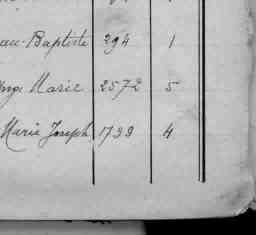 Baptiste 294 1
Marie 2572 5
Marie Joseph 1799 4